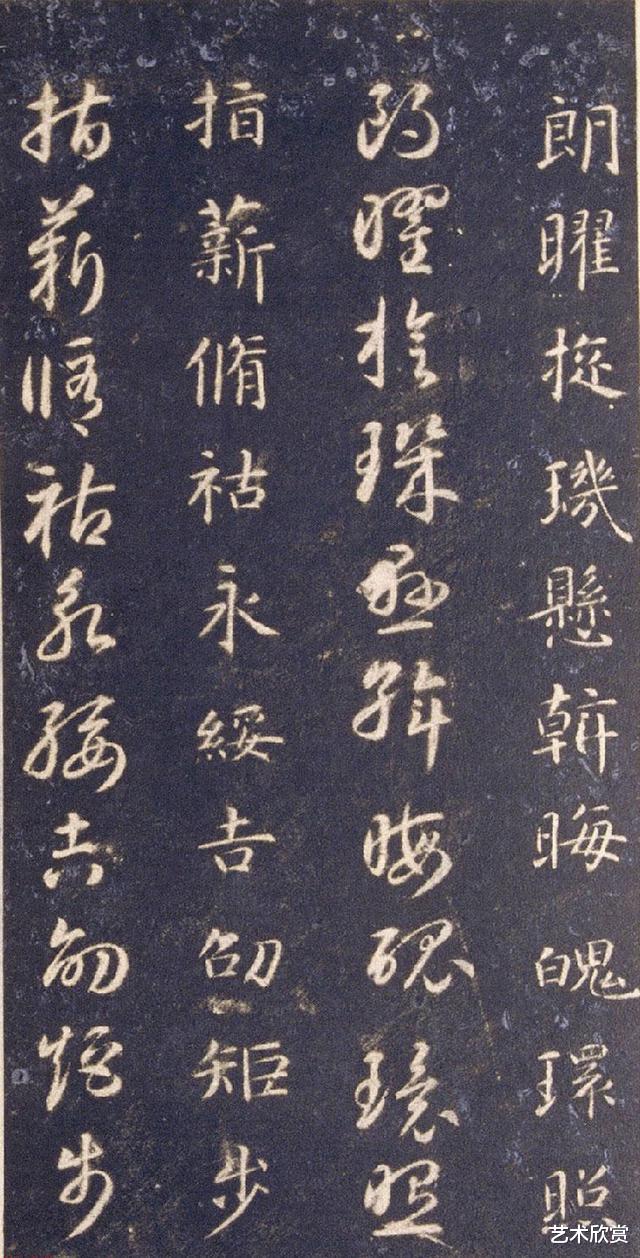 朗曜旋璣懸斡晦魄環照
朗曜旋璣懸斡晦魄環照
指薪脩祜永綏吉劭矩步
指薪脩祜永綏吉劭矩步
艺术欣赏